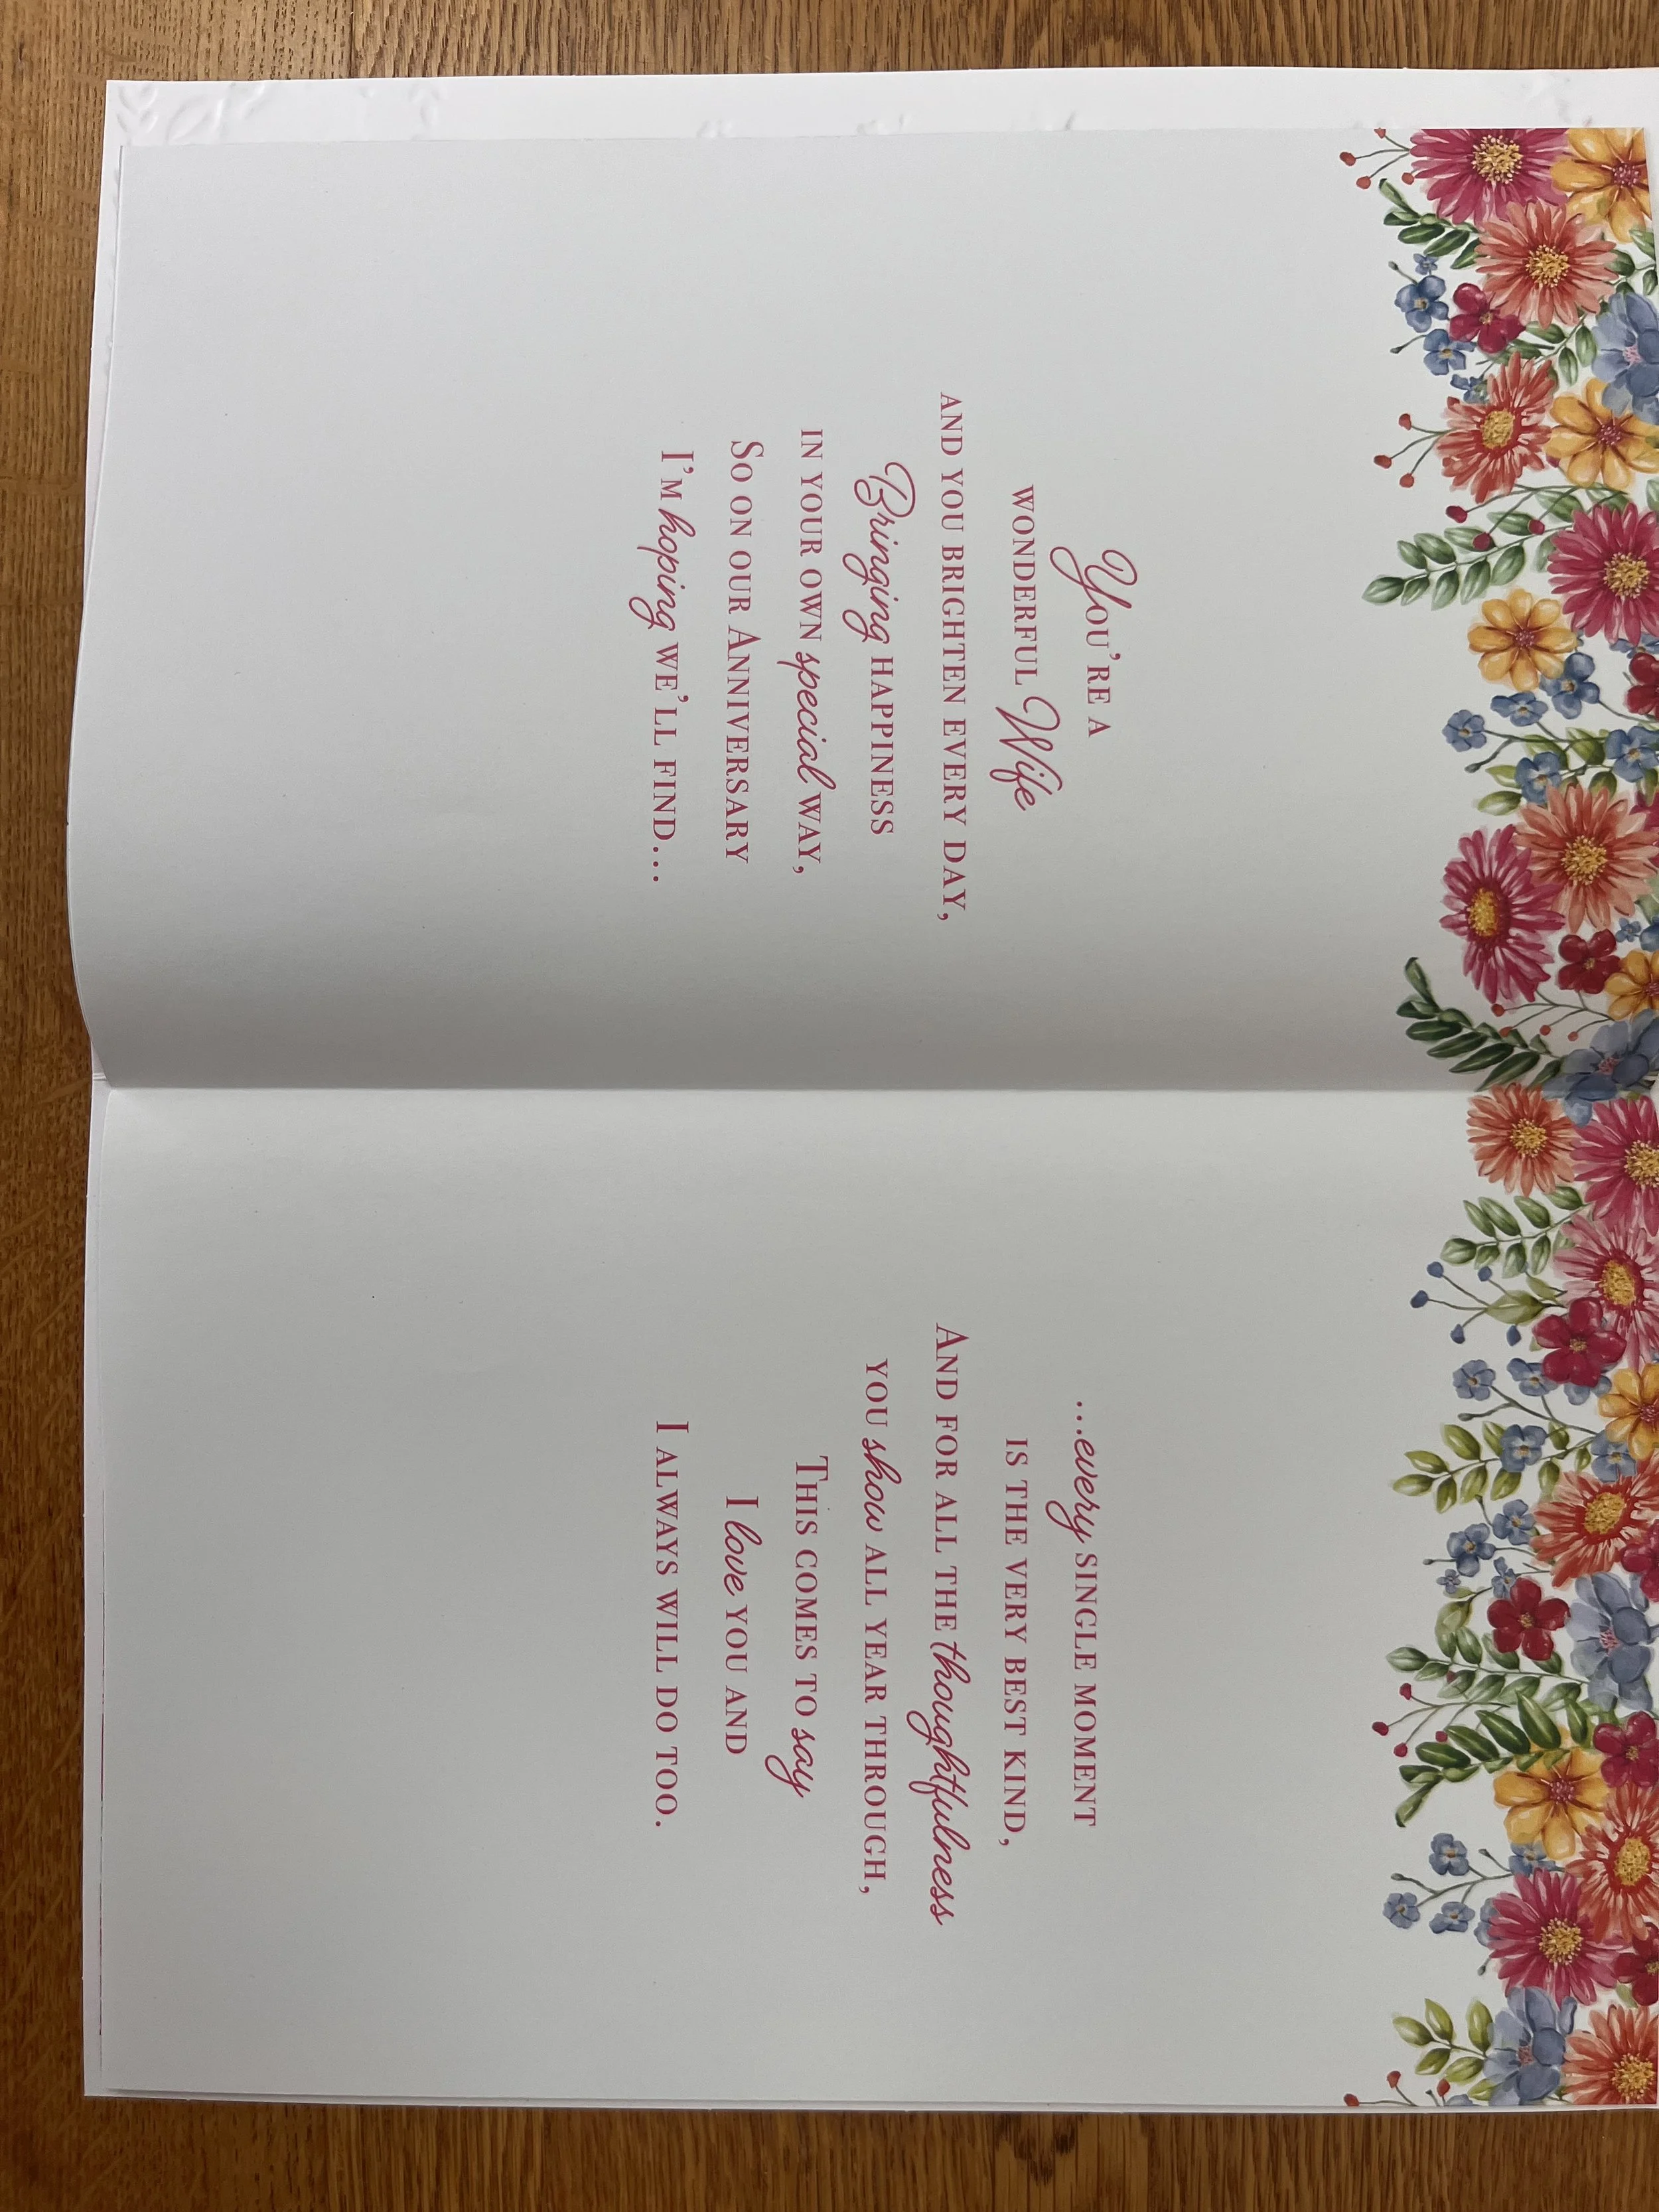 You're a
wonderful Wife
and you brighten every day,
Bringing happiness
in your own special way,
So on our Anniversary
I'm hoping we'll find...
...every single moment
is the very best kind,
And for all the thoughtfulness
you show all year through,
This comes to say
I love you and
I always will do too.